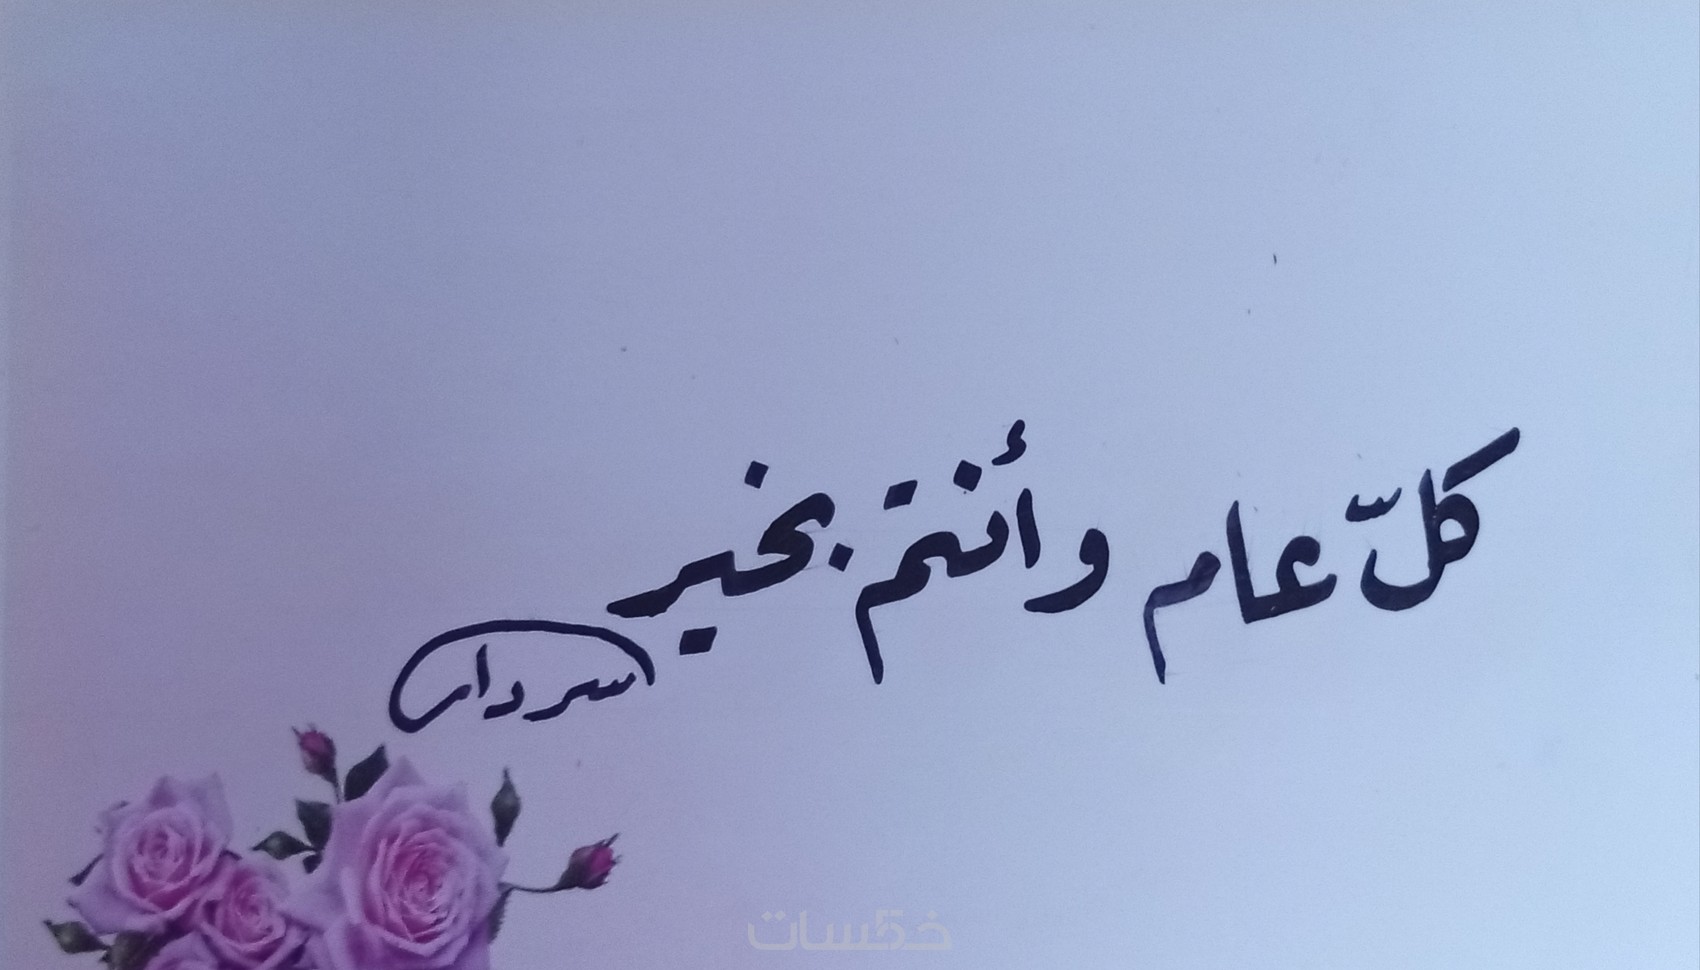 كلّ عام وأنتم بخير
سردار
خمسات